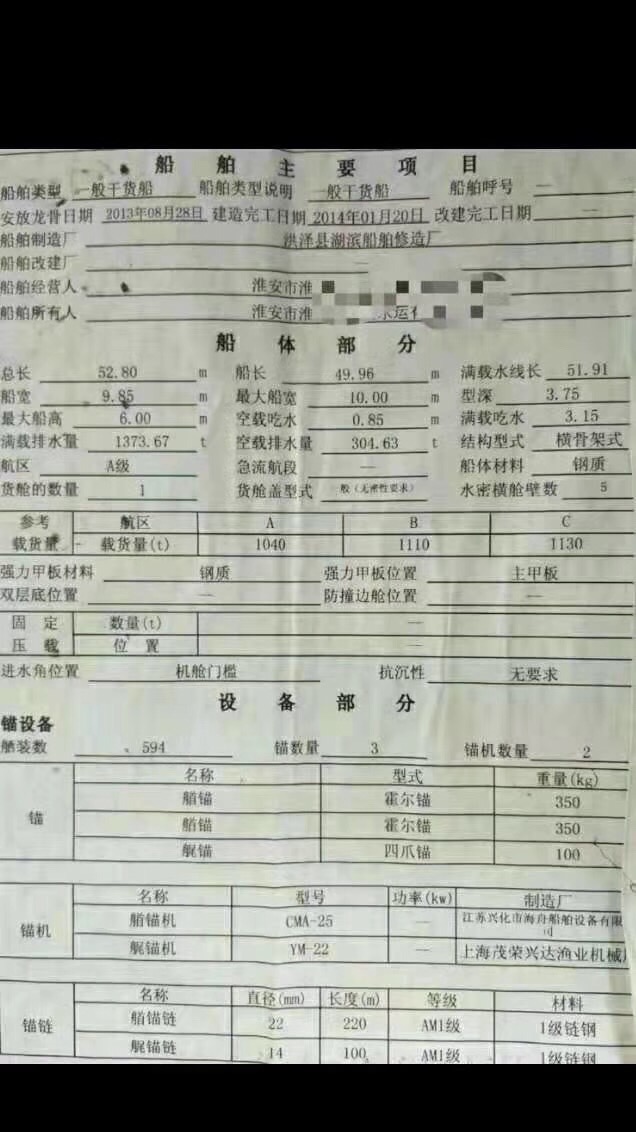 船舶主要项目
船舶类型 一般干货船 船舶类型说明 一般干货船 船舶呼号 —
安放龙骨日期 2013年08月28日 建造完工日期 2014年01月20日 改建完工日期 —
船舶制造厂 洪泽县湖滨船舶修造厂
船舶改建厂 —
船舶经营人 淮安市淮
船舶所有人 淮安市淮 水运有
船体部分
总长 52.80 m 船长 49.96 m 满载水线长 51.91
船宽 9.85 m 最大船宽 10.00 m 型深 3.75
最大船高 6.00 m 空载吃水 0.85 m 满载吃水 3.15
满载排水量 1373.67 t 空载排水量 304.63 t 结构型式 横骨架式
航区 A级 急流航段 — 船体材料 钢质
货舱的数量 1 货舱盖型式 般（无密性要求） 水密横舱壁数 5
参考 航区 A B C
载货量 载货量(t) 1040 1110 1130
强力甲板材料 钢质 强力甲板位置 主甲板
双层底位置 — 防撞边舱位置 —
固定 数量(t) —
压载 位置 —
进水角位置 机舱门槛 抗沉性 无要求
设备部分
锚设备
舾装数 594 锚数量 3 锚机数量 2
名称 型式 重量(kg)
艏锚 霍尔锚 350
锚 艏锚 霍尔锚 350
艉锚 四爪锚 100
名称 型号 功率(kw) 制造厂
锚机 艏锚机 CMA-25 — 江苏兴化市海舟船舶设备有限
司
艉锚机 YM-22 — 上海茂荣兴达渔业机械
名称 直径(mm) 长度(m) 等级 材料
锚链 艏锚链 22 220 AM1级 1级链钢
艉锚链 14 100 AM1级 1级链钢